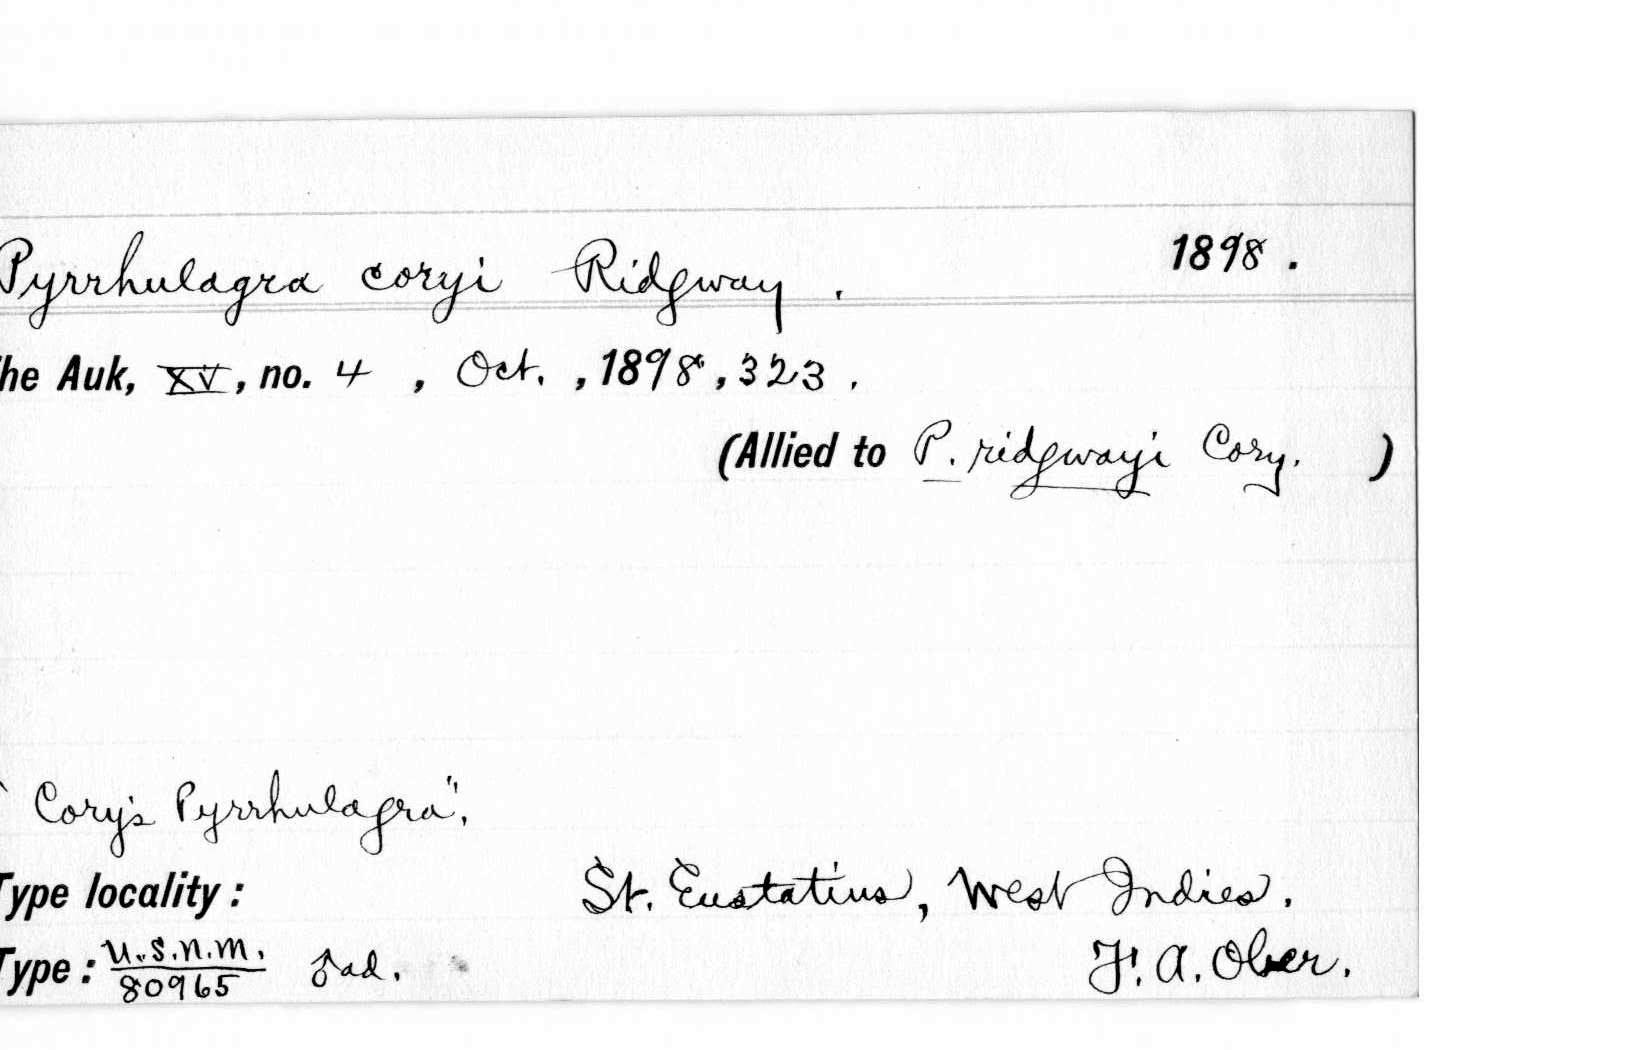 Pyrrhulagra coryi Ridgway . 1898 .
he Auk, XV, no. 4 , Oct. , 1898 , 323 .
(Allied to P. ridgwayi Cory. )
" Cory's Pyrrhulagra".
Type locality : St. Eustatius, West Indies .
Type : U.S.N.M. / 80965 ♂ ad. F. A. Ober .